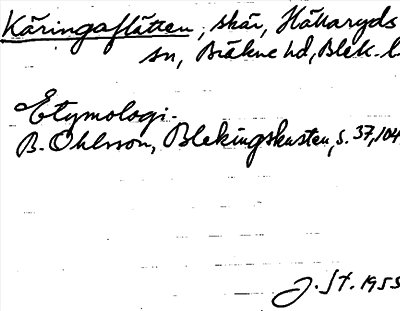 Käringaflätten, skär, Hällaryds
sn, Bräkne hd, Blek. l.
Etymologi.
B. Ohlsson, Blekingskusten, s. 37, 104
J. St. 1955